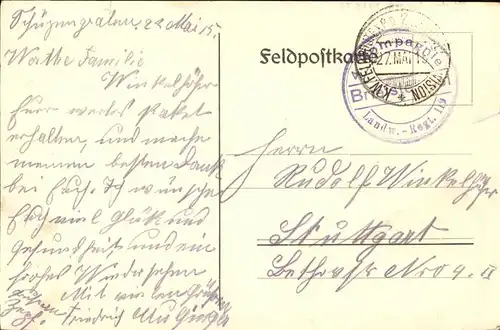 Schüzengraben, 22 Mai 15.
Werthe Familie
Winkelhöfer
Euer wertes Paket
erhalten, und mache
meinen besten Dank
bei Euch. Ich wünsche
Euch viel Glück und
Gesundheit und ein
frohes Wiedersehen
Mit vielen Grüßen
Friedrich
Feldpostkarte
27. MAI
Landw. - Regt. 119
Herrn
Rudolf Winkelhöfer
Stuttgart
Bethovstr Nro 9. II